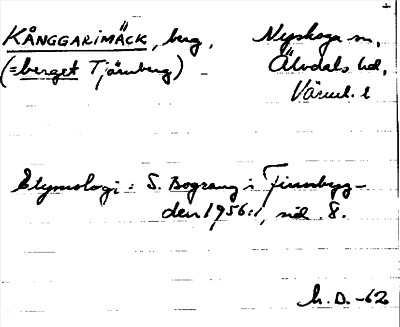 KÅNGGARIMÄCK, berg, Nyskoga sn,
(=berget Tjärnberg) Älvdals hd,
Värml. l
Etymologi: S. Bograng i Finnbyg-
den 1956:1, sid. 8.
h. D. -62